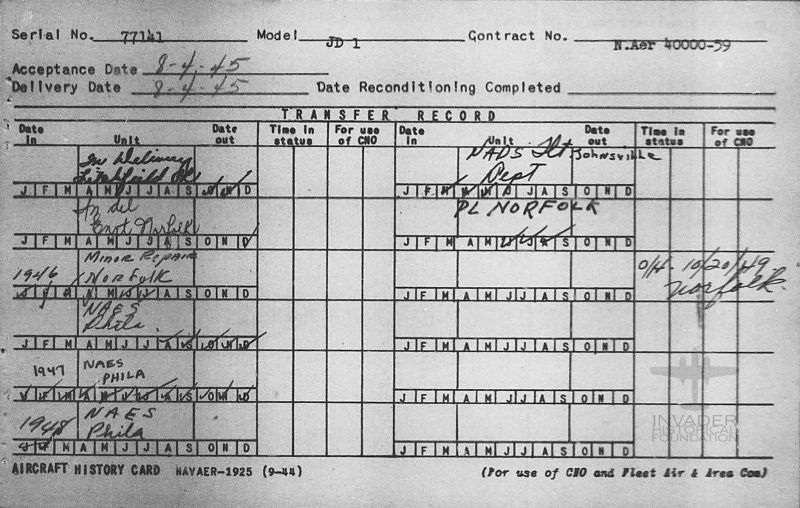 Serial No. 77141 Model JD 1 Contract No. N.Aer 40000-59
Acceptance Date 8-4-45
Delivery Date 8-4-45 Date Reconditioning Completed
TRANSFER RECORD
Date in Unit Date out Time in status For use of CNO Date in Unit Date out Time in status For use of CNO
In Delivery
Litchfield
J F M A M J J A S O N D
In del
Enrt Norfolk
J F M A M J J A S O N D
Minor Repair
1946 Norfolk
J F M A M J J A S O N D
NAES
Phila.
J F M A M J J A S O N D
1947 NAES
PHILA
J F M A M J J A S O N D
1948 NAES
Phila
J F M A M J J A S O N D
NADS Flt Johnsville
Dept
J F M A M J J A S O N D
PL NORFOLK
J F M A M J J A S O N D
O/H - 10/20/49
Norfolk
J F M A M J J A S O N D
J F M A M J J A S O N D
J F M A M J J A S O N D
J F M A M J J A S O N D
INVADER
HISTORICAL
FOUNDATION
AIRCRAFT HISTORY CARD NAVAER-1925 (9-44) (For use of CNO and Fleet Air & Area Com)